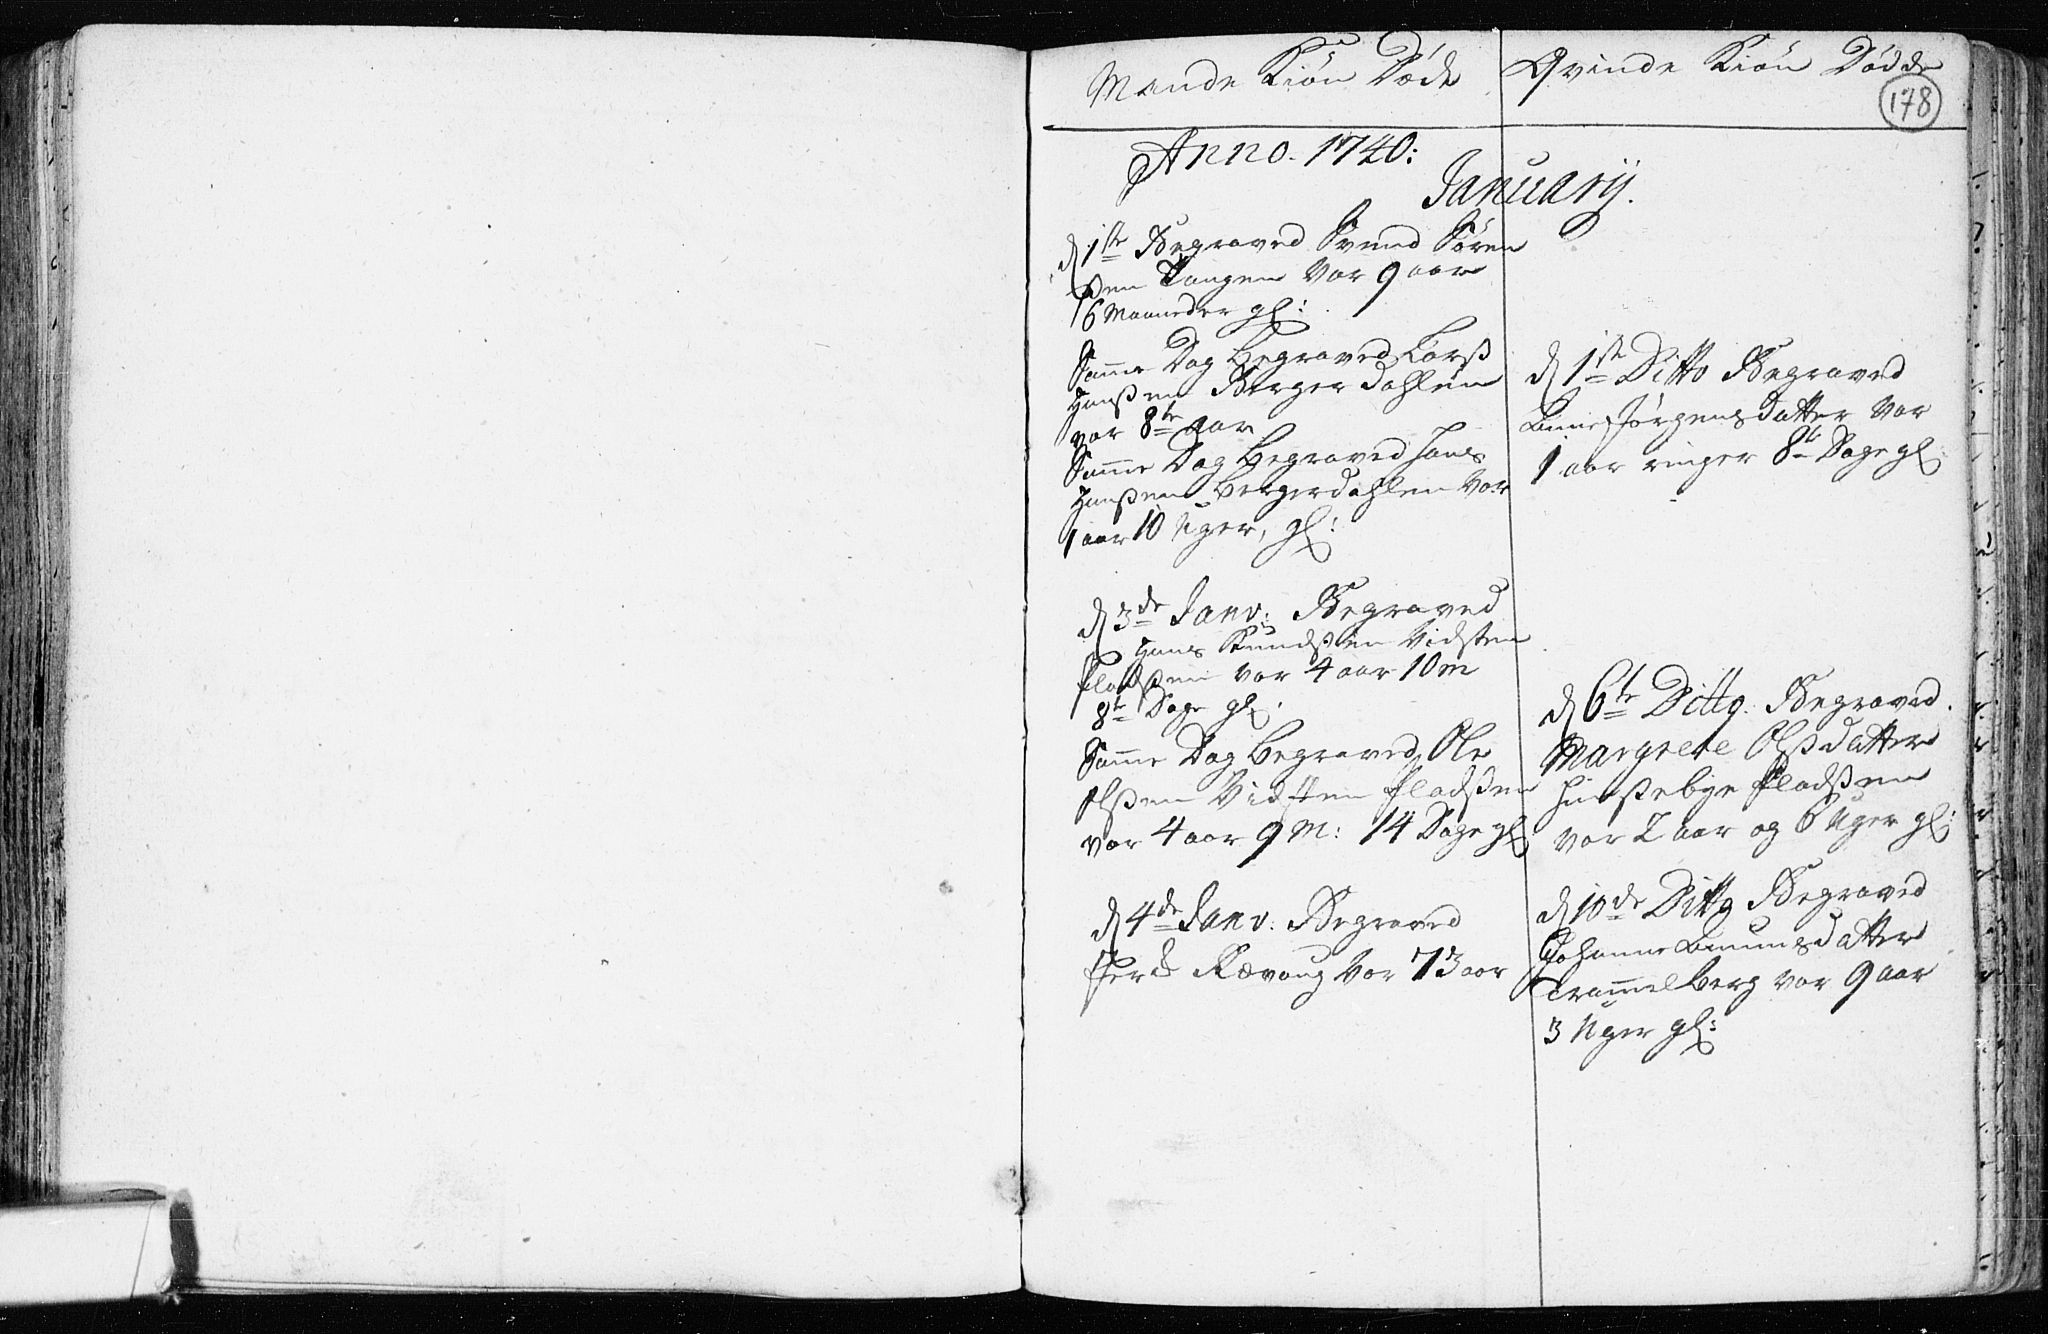 Mande Kiøn Døde
Qvinde Kiøn Døde
178
Anno. 1740:
January.
d 1ste Begraved Svend Søren
ßen Tangen var 9 aar
6 Maaneder gl:
Samme Dag Begraved Larß
Hanßen Bergerdahlen
var 8te aar
Samme Dag Begraved Hans
Hanßen Bergerdahlen var
1 aar 10 Uger, gl:
d 3de Janv: Begraved
Hans Knudsßen Vidsten
Pladßen var 4 aar 10 m
8te Dage gl:
Samme Dag Begraved Ole
Olßen Vidsten Pladßen
var 4 aar 9 M: 14 Dage gl
d 4de Janv: Begraved
Per Rævoug var 73 aar
d 1ste Ditto Begraved
Jørgensdatter var
1 aar ringer 8te Dage gl
d 6te Ditto. Begraved.
Margrete Olßdatter
Pladßen
var 2 aar og 6 Uger gl:
d 10de Ditto Begraved
Johanne Amunsdatter
Trammelberg var 9 aar
3 Uger gl: